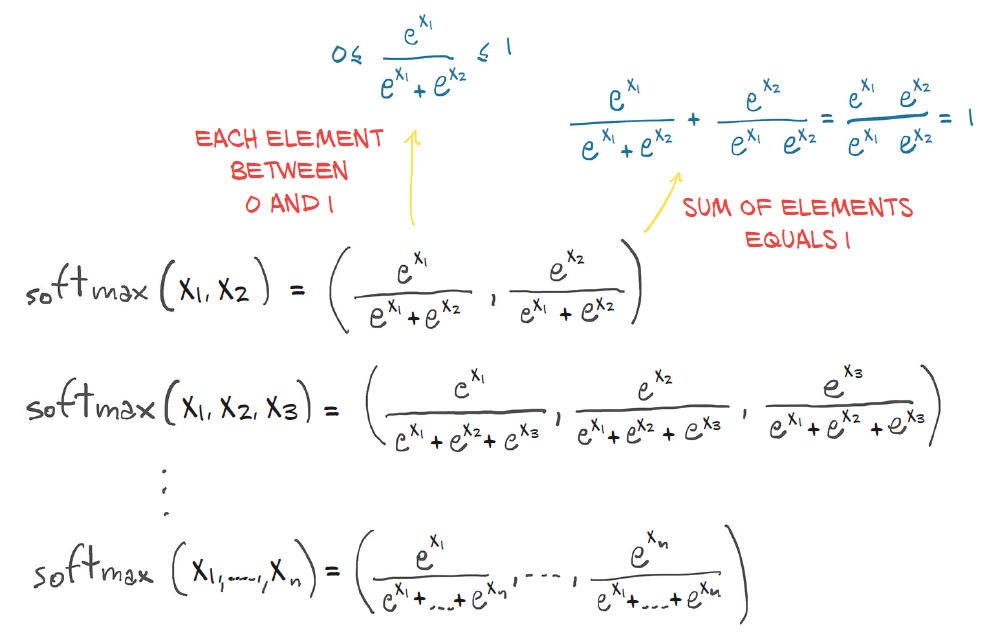 0 ≤ e^x₁ / (e^x₁ + e^x₂) ≤ 1
e^x₁ / (e^x₁ + e^x₂) + e^x₂ / (e^x₁ e^x₂) = (e^x₁ e^x₂) / (e^x₁ e^x₂) = 1
EACH ELEMENT
BETWEEN
0 AND 1
SUM OF ELEMENTS
EQUALS 1
softmax (x₁, x₂) = (e^x₁ / (e^x₁ + e^x₂), e^x₂ / (e^x₁ + e^x₂))
softmax (x₁, x₂, x₃) = (e^x₁ / (e^x₁ + e^x₂ + e^x₃), e^x₂ / (e^x₁ + e^x₂ + e^x₃), e^x₃ / (e^x₁ + e^x₂ + e^x₃))
⋮
softmax (x₁, ..., xₙ) = (e^x₁ / (e^x₁ + ... + e^xₙ), ..., e^xₙ / (e^x₁ + ... + e^xₙ))